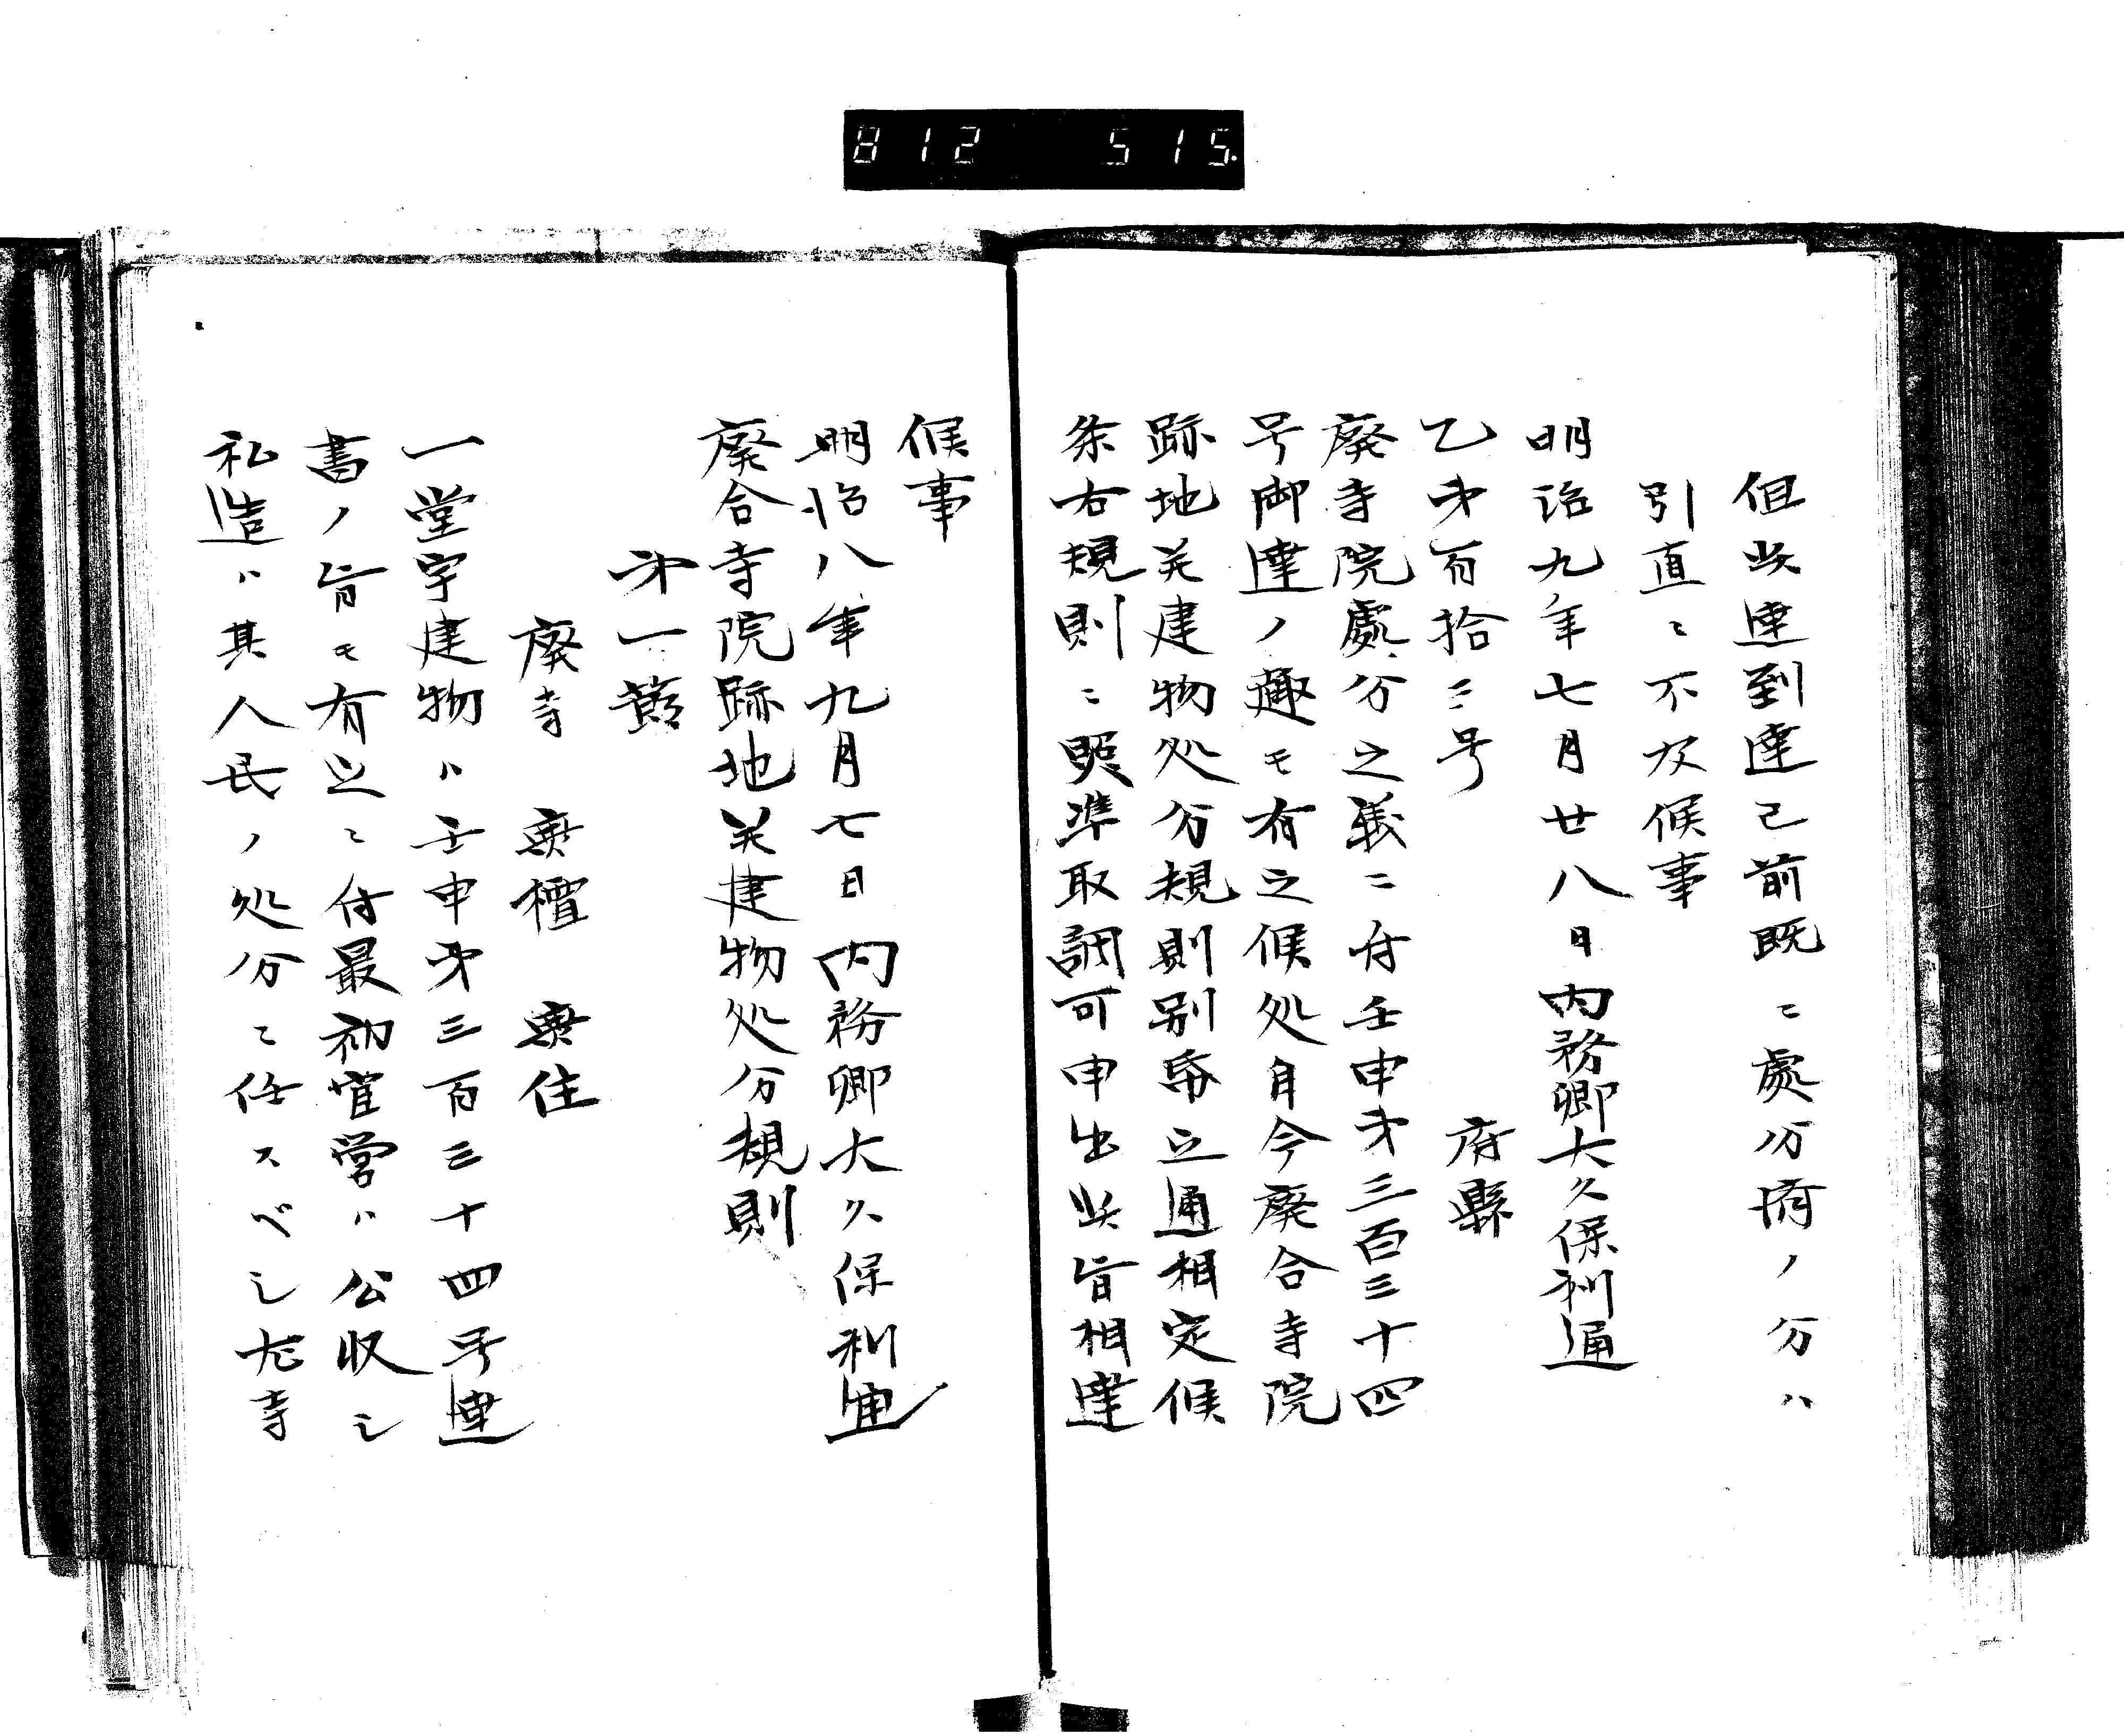 812 515.
但此達到達已前既ニ處分濟ノ分ハ
引直ニ不及候事
明治九年七月廿八日内務卿大久保利通
乙第百拾二号　府縣
廃寺院處分之義ニ付壬申第三百三十四
号御達ノ趣モ有之候処自今廃合寺院
跡地並建物処分規則別帋之通相定候
条右規則ニ照準取調可申出此旨相達
候事
明治八年九月七日内務卿大久保利通
廃合寺院跡地並建物処分規則
第一節
廃寺　無檀　無住
一堂宇建物ハ壬申第三百三十四号達
書ノ旨モ有之ニ付最初官営ハ公収シ
私造ハ其人民ノ処分ニ任スベシ尤寺